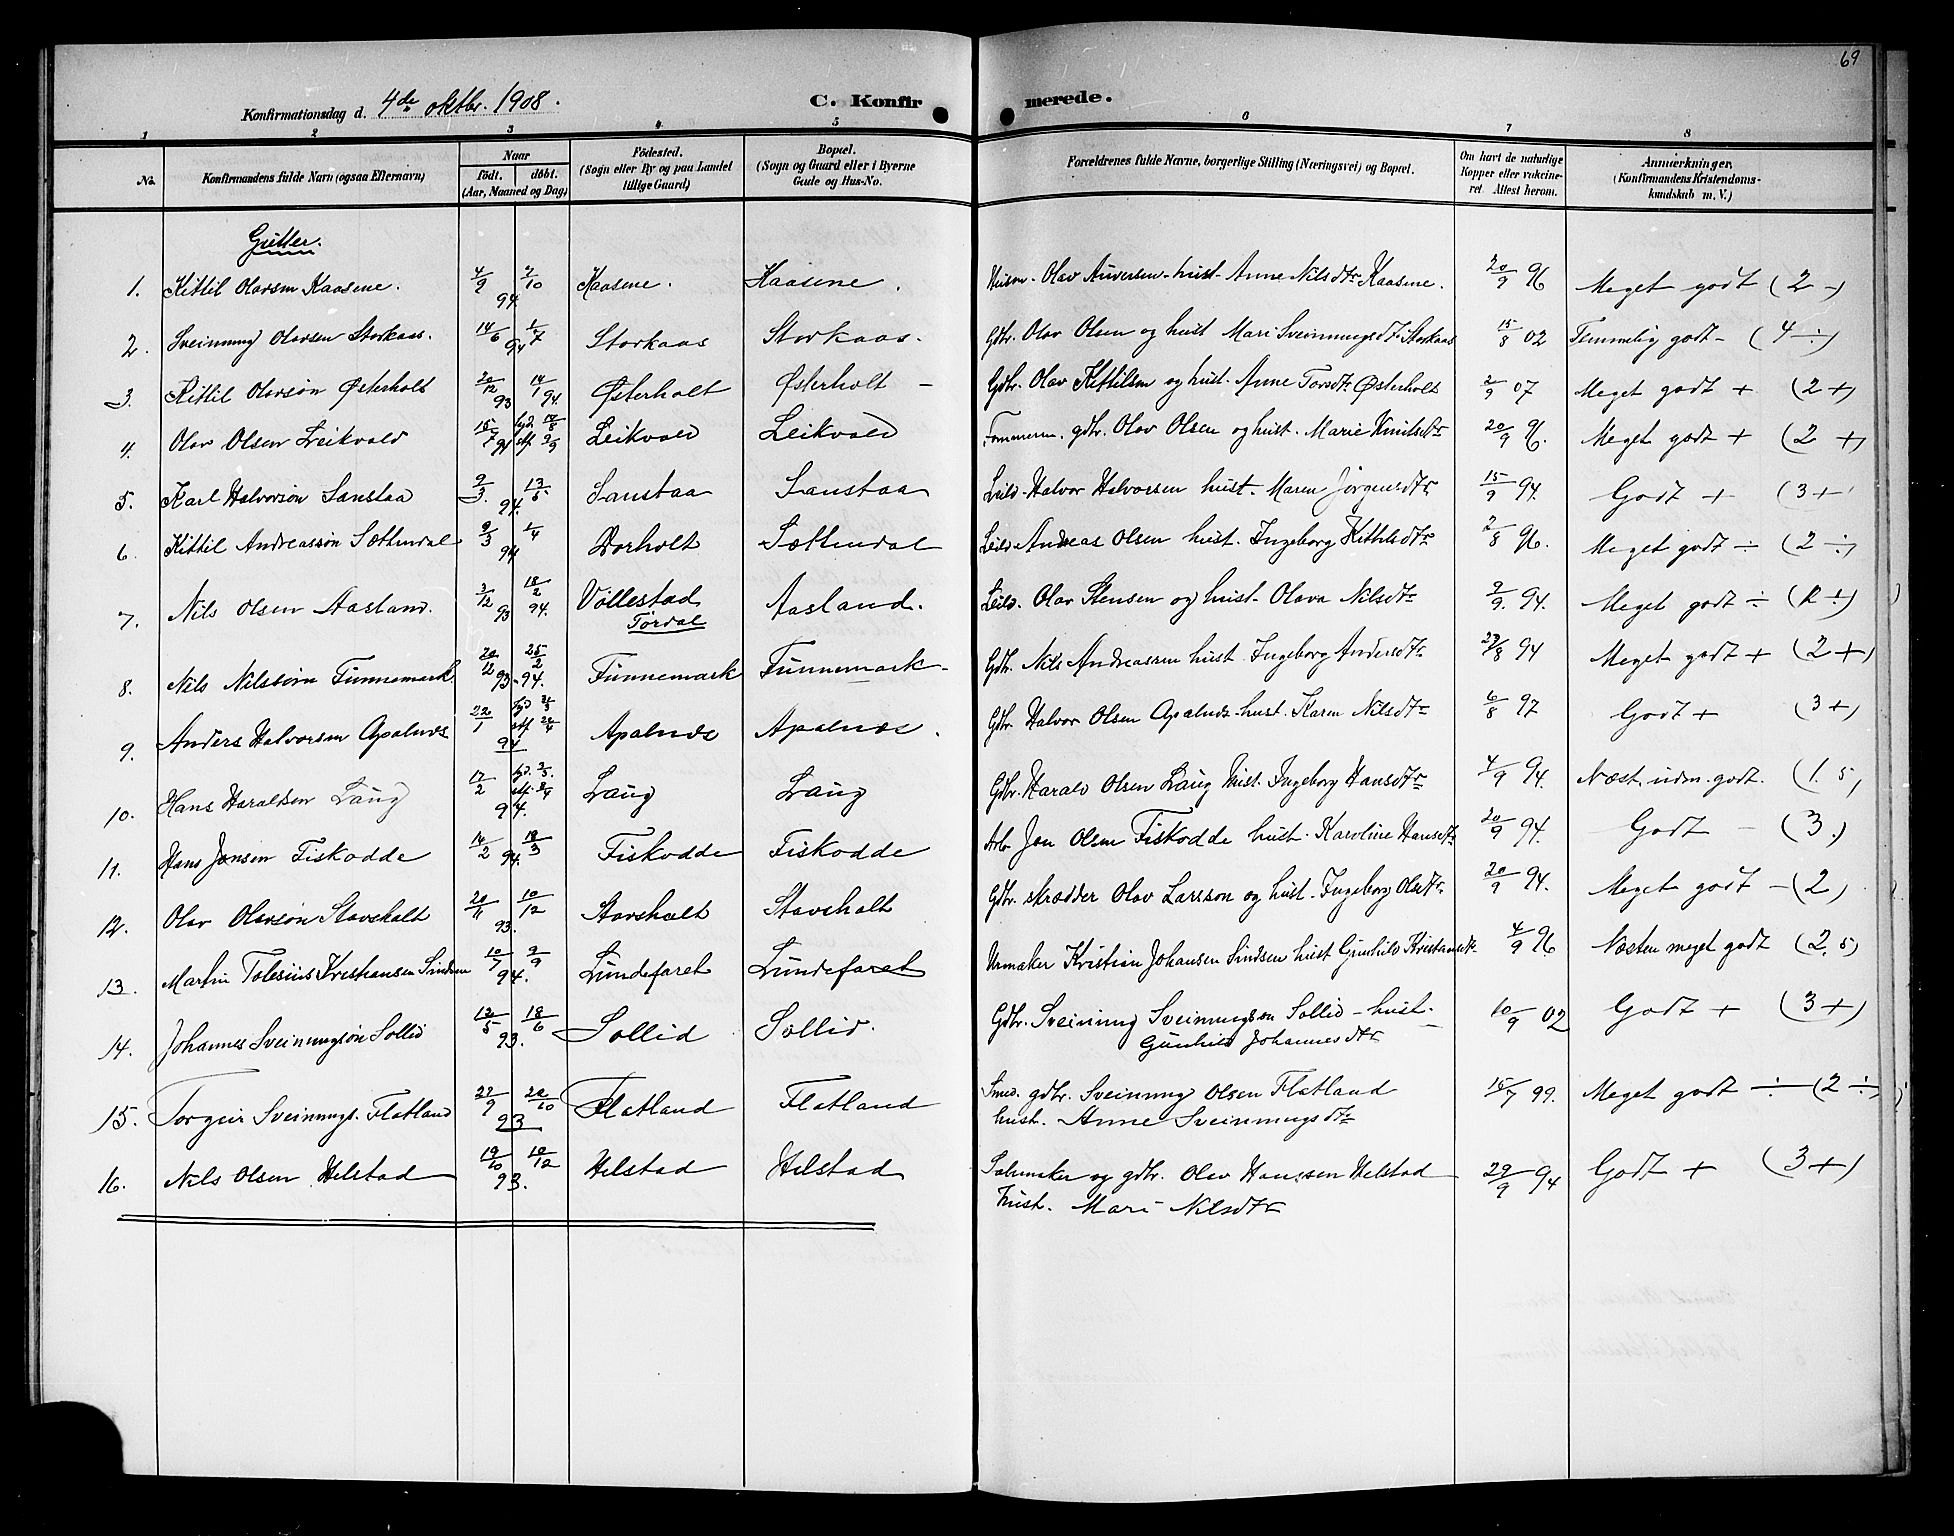 69
Konfirmationsdag d. 4de oktbr. 1908.
C. Konfirmerede.
1 2 3 4 5 6 7 8
No. Konfirmandens fulde Navn (ogsaa Efternavn) Naar født. døbt. (Aar, Maaned og Dag) Fødested. (Sogn eller By og paa Landet tillige Gaard) Bopæl. (Sogn og Gaard eller i Byerne Gade og Hus-No. Forældrenes fulde Navne, borgerlige Stilling (Næringsvei) og Bopæl. Om havt de naturlige Kopper eller vakcineret. Attest herom. Anmærkninger. (Konfirmandens Kristendomskundskab m. V.)
Gutter.
1. Kittil Olavsen Kaasene. 4/9 2/10 94 Kaasene. Kaasene. Husm. Olav Auversen hust. Anne Nilsdtr Kaasene. 20/9 96 Meget godt (2 -)
2. Sveinung Olavsen Storkaas. 14/6 1/7 94 Storkaas Storkaas. Gdbr. Olav Olsen og hust Mari Sveinungsdtr Storkaas 15/8 02 Temmelig godt - (4 ÷)
3. Kittil Olavsøn Østerholt 20/12 93 14/1 94. Østerholt Østerholt - Gdbr. Olav Kittilsen og hust. Anne Torsdtr Østerholt 2/9 07 Meget godt + (2+)
4. Olav Olsen Leikvold 15/7 94 Leikvold Leikvold Tømmerm. gdbr. Olav Olsen og hust. Marie Knutsdtr 20/9 96. Meget godt + (2 +)
5. Karl Halvorsøn Sanstaa 9/3. 13/5 94. Sanstaa Sanstaa Leild. Halvor Halvorsen hust. Maren Jørgensdtr 15/9 94. Godt + (3+)
6. Kittil Andreassøn Sættendal 9/3 1/4 94 Dorholt Sættendal Leild. Andreas Olsen hust. Ingeborg Kittilsdtr 2/8 96. Meget godt ÷ (2 ÷)
7. Nils Olsen Aasland. 3/12 93 18/2 94. Vøllestad Tørdal Aasland. Leild. Olav Stensen og hust. Olava Nilsdtr 2/9. 94. Meget godt ÷ (2 ÷)
8. Nils Nilssøn Tunnemark. 20/12 93 25/2 94. Tunnemark Tunnemark Gdbr. Nils Andreassen hust. Ingeborg Andersdtr 23/8 94 Meget godt + (2+)
9. Anders Halvorsen Apalnes 22/1 94 Apalnes Apalnes. Gdbr. Halvor Olsen Apalnes hust. Karen Nilsdtr 6/8 97 Godt + (3+)
10. Hans Haraldsen Laug 17/2 94. Laug Laug Gdbr. Harald Olsen Laug hust. Ingeborg Hansdtr 4/9 94. Næst. udm. godt. (1.5)
11. Hans Jonsen Fiskodde 14/2 18/3 94. Fiskodde Fiskodde Arb. Jon Olsen Fiskodde hust. Karoline Hansdtr 20/9 94. Godt - (3.)
12. Olav Olavsøn Stavsholt 20/11 10/12 93. Stavsholt Stavsholt Gdbr. skrædder Olav Larsson og hust. Ingeborg Olsdtr 20/9 94. Meget godt - (2)
13. Martin Tolesius Kristiansen Sindsen 10/7 9/9 94. Lundefaret Lundefaret Urmaker Kristian Johansen Sindsen hust Gunhild Kristiansdtr 4/9 96 Næsten meget godt (2.5)
14. Johannes Sveinungsøn Sollid 13/5 18/6 93. Sollid Sollid. Gdbr. Sveinung Sveinungsøn Sollid - hust.
Gunhild Johannesdtr 10/9 02 Godt + (3+)
15. Torgeir Sveinungs. Flatland 27/9 22/10 93 Flatland Flatland Smed. gdbr. Sveinung Olsen Flatland
hust. Anne Sveinungsdtr 15/7 99. Meget godt ÷ (2 ÷)
16. Nils Olsen Helstad 19/10 10/12 93. Helstad Helstad Salmaker og gdbr. Olav Hanssen Helstad
hust. Mari Nilsdtr 29/9 94 Godt + (3+)